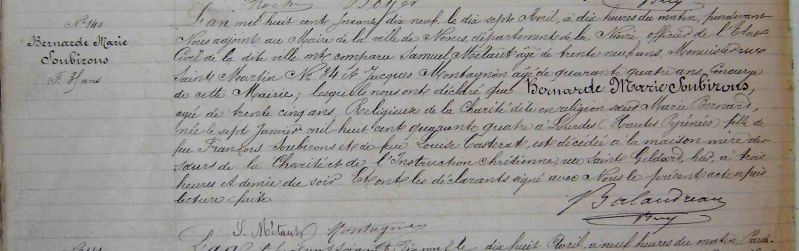 N° 140
Bernarde Marie
Soubirous
F. 35 ans
L'an mil huit cent soixante dix neuf, le dix sept Avril, à dix heures du matin, pardevant
Nous adjoint au Maire de la ville de Nevers, département de la Nièvre, officier de l'Etat
Civil de la dite ville ont comparu Samuel Métaut âgé de trente neuf ans, Menuisier rue
Saint Martin N° 24 et Jacques Montagnon âgé de quarante quatre ans, Concierge
de cette Mairie; lesquels nous ont déclaré que Bernarde Marie Soubirous,
agée de trente cinq ans, Religieuse de la Charité dite en religion sœur Marie Bernard,
née le sept Janvier mil huit cent quarante quatre à Lourdes (Hautes Pyénées) fille de
feu François Soubirous et de feue Louise Casterat, est décédée à la maison mère des
Sœurs de la Charité et de l'Instruction chrétienne, rue Saint Gildard, hier, à trois
heures et demie du soir Et ont les déclarants signé avec Nous le présent acte après
lecture faite
S. Métaut Montagnon
L'an dix huit Avril, à neuf heures du matin Pard-